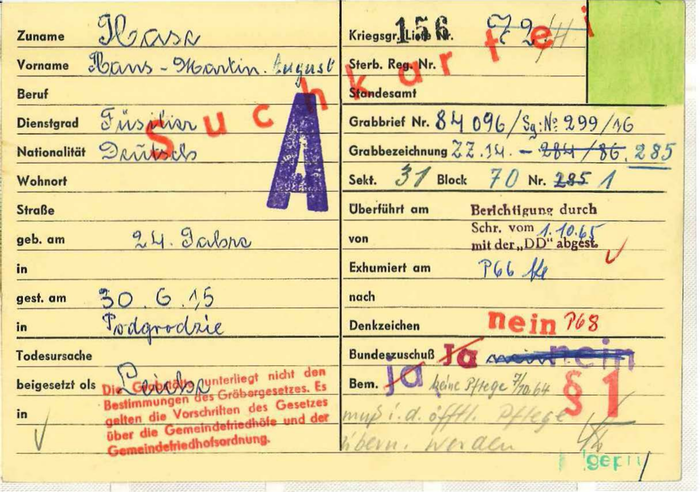 Suchkartei
A
Zuname Haase
Vorname Hans-Martin. August
Beruf
Dienstgrad Füsilier
Nationalität Deutsch
Wohnort
Straße
geb. am 24. Jahre
in
gest. am 30.6.15
in Podgrodzie
Todesursache
beigesetzt als Leiche
in
Die Grabstätte unterliegt nicht den
Bestimmungen des Gräbergesetzes. Es
gelten die Vorschriften des Gesetzes
über die Gemeindefriedhöfe und der
Gemeindefriedhofsordnung.
Kriegsgr. Liste Nr. 156 72
Sterb. Reg. Nr.
Standesamt
Grabbrief Nr. 84096/Sg:No 299/16
Grabbezeichnung ZZ.14. - 284/86, 285
Sekt. 31 Block 70 Nr. 285 1
Überführt am
von
Berichtigung durch
Schr. vom 1.10.65
mit der „DD" abgest.
Exhumiert am P66
nach
Denkzeichen nein P68
Bundeszuschuß Ja nein nein
Bem. ja keine Pflege 7/10.64 § 1
muß i.d. öfftl. Pflege
übern. werden